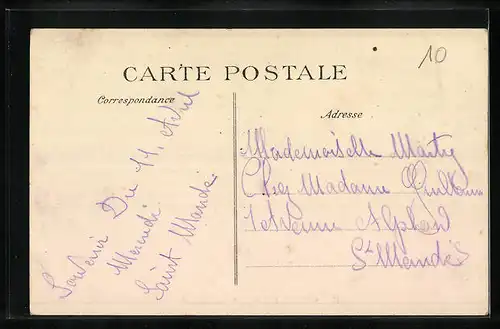 10
CARTE POSTALE
Correspondance
Adresse
Souvenir Du 11. Avril
Mercredi
Saint Mandé.
Mademoiselle Marty
Chez Madame
1 Avenue Alphand
St Mandé